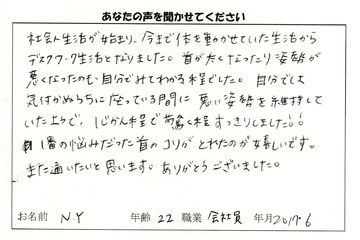 あなたの声を聞かせてください
社会人生活が始まり、今まで体を動かせていた生活から
デスクワーク生活となりました。首が太くなったり姿勢が
悪くなったのも自分でみてわかる程でした。自分では
気付かぬうちに座っている間に悪い姿勢を維持して
いたようで、1じかん程で驚く程すっきりしました!!
1番の悩みだった首のコリがとれたのが嬉しいです。
また通いたいと思います。ありがとうございました。
お名前 N.Y 年齢 22 職業 会社員 年月 2017.6